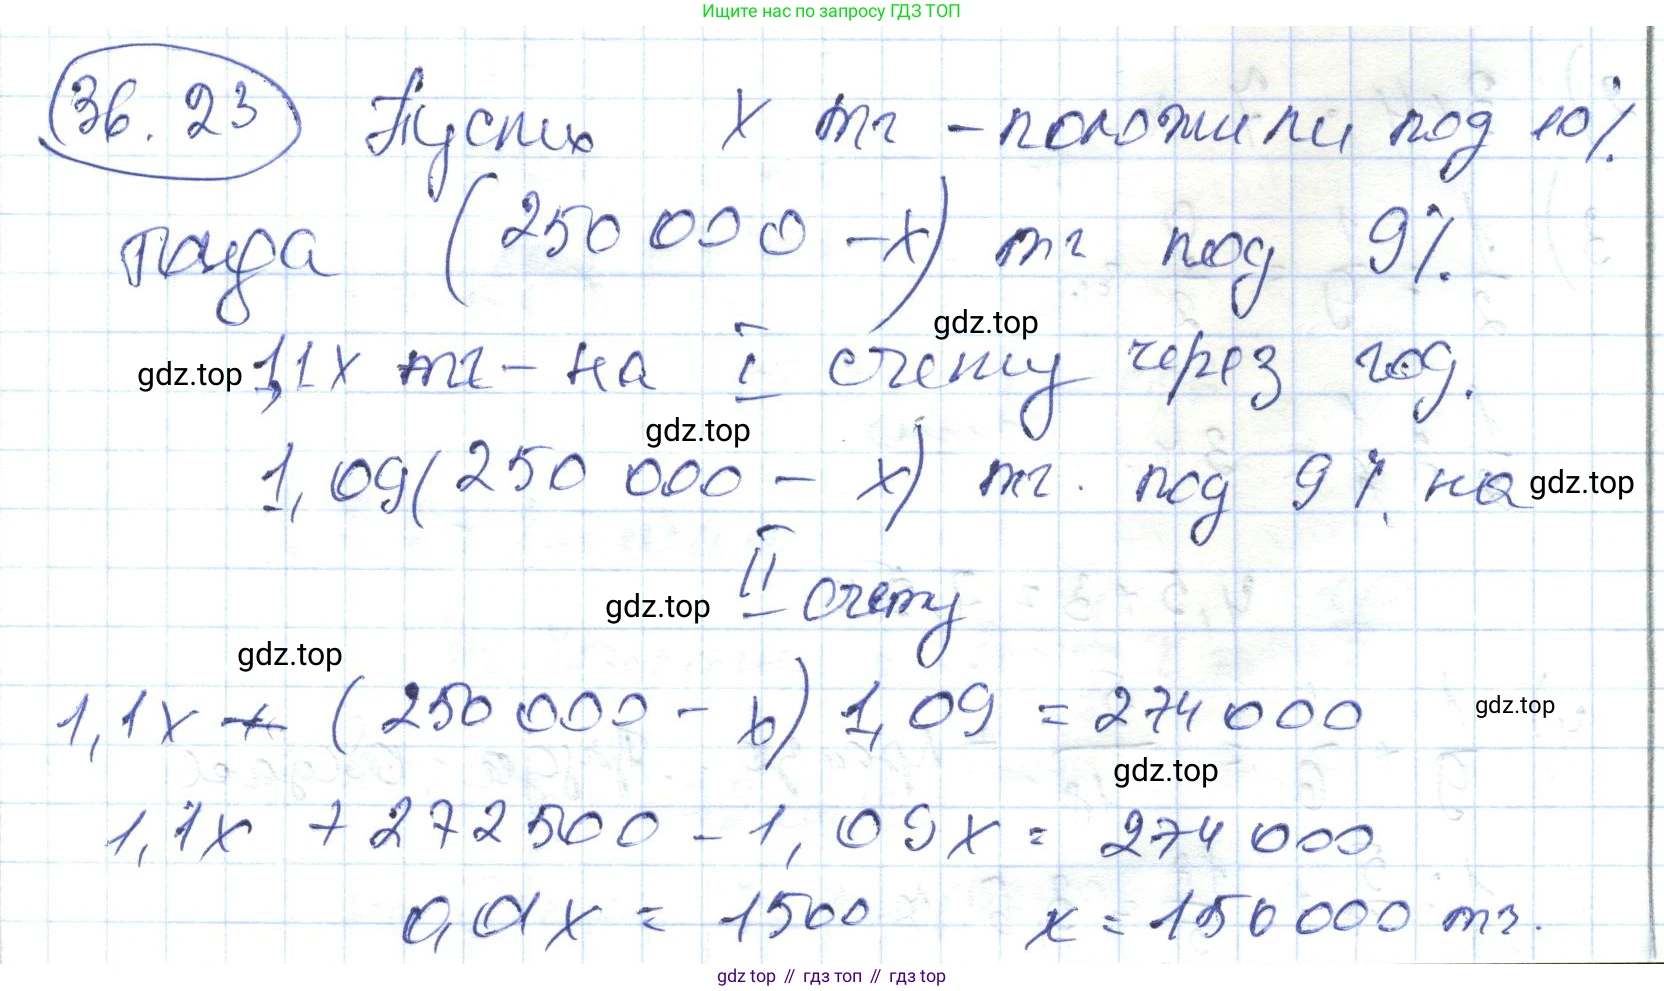 Ищите нас по запросу ГДЗ ТОП
36.23 Пусть x тг - положили под 10%
тогда (250 000 - x) тг под 9%.
gdz.top
gdz.top 1,1x тг - на I счету через год.
gdz.top
1,09(250 000 - x) тг. под 9% на gdz.top
gdz.top II счету
gdz.top
1,1x + (250 000 - x) 1,09 = 274 000 gdz.top
gdz.top
1,1x + 272500 - 1,09x = 274 000
0,01x = 1500 x = 150 000 тг.
gdz top // гдз топ // gdz top